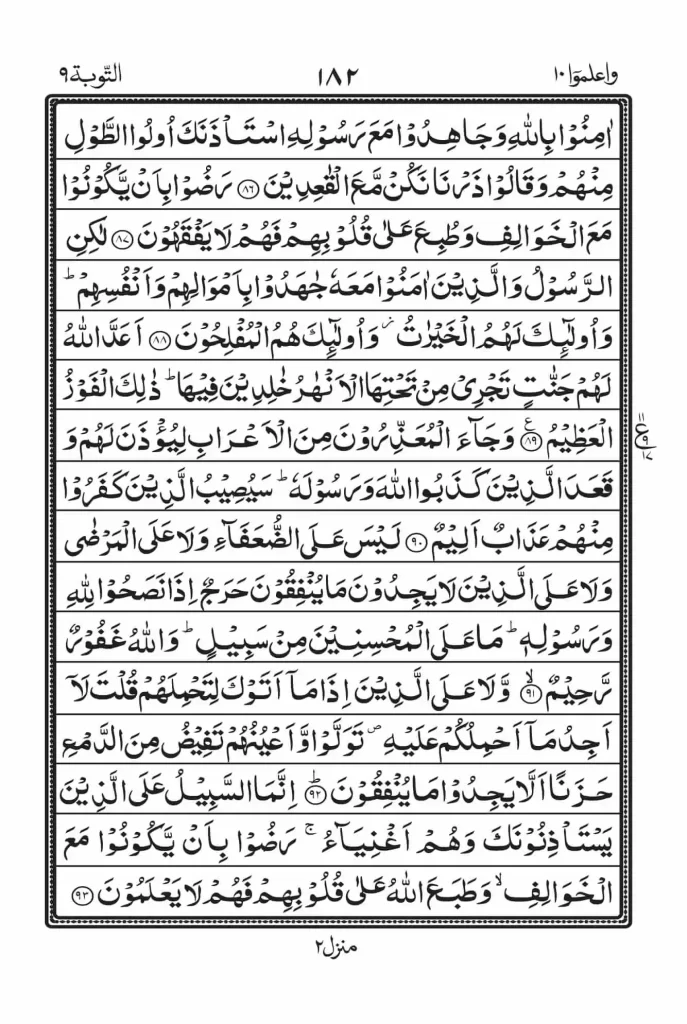 واعلموا ١٠ ١٨٢ التّوبة ٩
اٰمِنُوۡا بِاللّٰهِ وَجَاهِدُوۡا مَعَ رَسُوۡلِهِ اسۡتَاۡذَنَكَ اُولُوا الطَّوۡلِ
مِنۡهُمۡ وَقَالُوۡا ذَرۡنَا نَكُنۡ مَّعَ الۡقٰعِدِيۡنَ ﴿۸۶﴾ رَضُوۡا بِاَنۡ يَّكُوۡنُوۡا
مَعَ الۡخَوَالِفِ وَطُبِعَ عَلٰى قُلُوۡبِهِمۡ فَهُمۡ لَا يَفۡقَهُوۡنَ ﴿۸۷﴾ لٰكِنِ
الرَّسُوۡلُ وَالَّذِيۡنَ اٰمَنُوۡا مَعَهٗ جٰهَدُوۡا بِاَمۡوَالِهِمۡ وَاَنۡفُسِهِمۡ ؕ
وَاُولٰٓٮِٕكَ لَهُمُ الۡخَيۡرٰتُ ز وَاُولٰٓٮِٕكَ هُمُ الۡمُفۡلِحُوۡنَ ﴿۸۸﴾ اَعَدَّ اللّٰهُ
لَهُمۡ جَنّٰتٍ تَجۡرِىۡ مِنۡ تَحۡتِهَا الۡاَنۡهٰرُ خٰلِدِيۡنَ فِيۡهَا ؕ ذٰلِكَ الۡفَوۡزُ
الۡعَظِيۡمُ ﴿۸۹﴾ ع وَجَآءَ الۡمُعَذِّرُوۡنَ مِنَ الۡاَعۡرَابِ لِيُؤۡذَنَ لَهُمۡ وَ
قَعَدَ الَّذِيۡنَ كَذَبُوا اللّٰهَ وَرَسُوۡلَهٗ ؕ سَيُصِيۡبُ الَّذِيۡنَ كَفَرُوۡا
مِنۡهُمۡ عَذَابٌ اَلِيۡمٌ ﴿۹۰﴾ لَيۡسَ عَلَى الضُّعَفَآءِ وَلَا عَلَى الۡمَرۡضٰى
وَلَا عَلَى الَّذِيۡنَ لَا يَجِدُوۡنَ مَا يُنۡفِقُوۡنَ حَرَجٌ اِذَا نَصَحُوۡا لِلّٰهِ
وَرَسُوۡلِهٖ ؕ مَا عَلَى الۡمُحۡسِنِيۡنَ مِنۡ سَبِيۡلٍ ؕ وَاللّٰهُ غَفُوۡرٌ
رَّحِيۡمٌ ۙ﴿۹۱﴾ وَّلَا عَلَى الَّذِيۡنَ اِذَا مَاۤ اَتَوۡكَ لِتَحۡمِلَهُمۡ قُلۡتَ لَاۤ
اَجِدُ مَاۤ اَحۡمِلُكُمۡ عَلَيۡهِ ص تَوَلَّوْا وَّاَعۡيُنُهُمۡ تَفِيۡضُ مِنَ الدَّمۡعِ
حَزَنًا اَلَّا يَجِدُوۡا مَا يُنۡفِقُوۡنَ ؕ﴿۹۲﴾ اِنَّمَا السَّبِيۡلُ عَلَى الَّذِيۡنَ
يَسۡتَاۡذِنُوۡنَكَ وَهُمۡ اَغۡنِيَآءُ ۚ رَضُوۡا بِاَنۡ يَّكُوۡنُوۡا مَعَ
الۡخَوَالِفِ ۙ وَطَبَعَ اللّٰهُ عَلٰى قُلُوۡبِهِمۡ فَهُمۡ لَا يَعۡلَمُوۡنَ ﴿۹۳﴾
منزل ٢